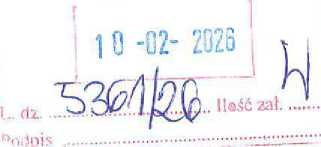 10 -02- 2026
L. dz. 5361/26 Ilość zał.
Podpis